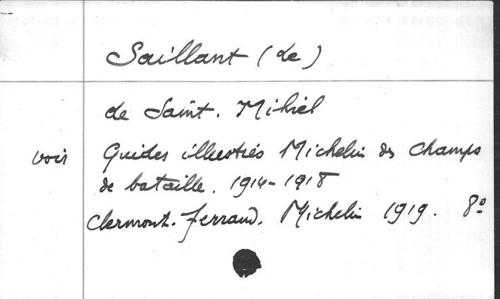 Saillant (Le)
de Saint. Mihiel
voir Guides illustrés Michelin des Champs
de bataille. 1914-1918
Clermont-Ferrand. Michelin 1919. 8°